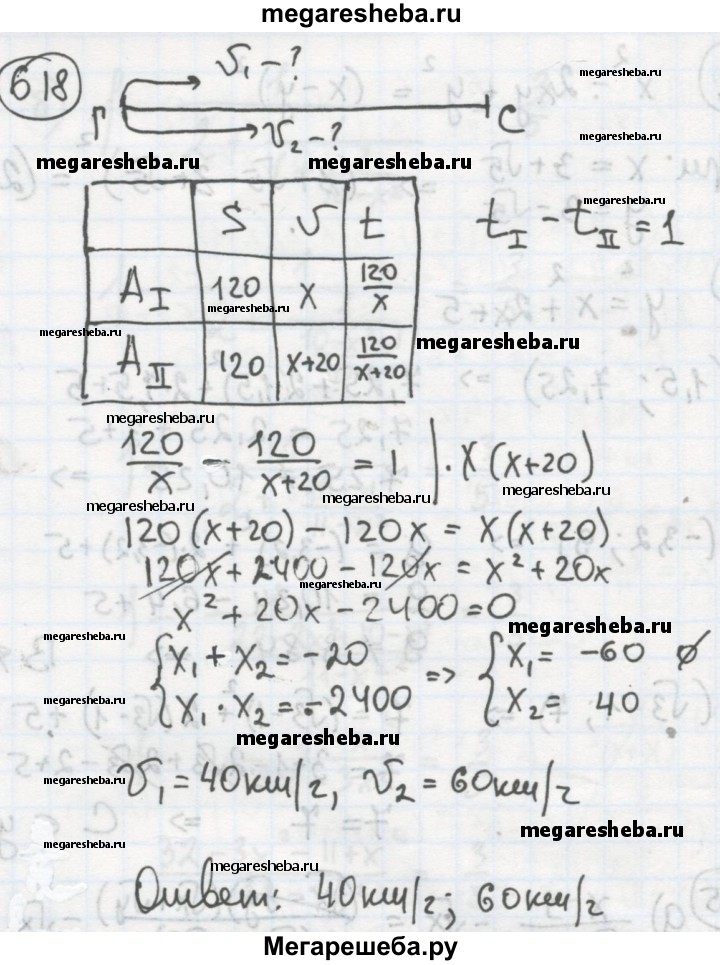 megaresheba.ru
618
V₁ - ?
megaresheba.ru
Г C
megaresheba.ru
V₂ - ?
megaresheba.ru megaresheba.ru
megaresheba.ru
S V t
t_I - t_II = 1
A_I 120 x 120/x
megaresheba.ru
megaresheba.ru
A_II 120 x+20 120/(x+20)
megaresheba.ru
megaresheba.ru
120/x - 120/(x+20) = 1 | · x(x+20)
megaresheba.ru megaresheba.ru
megaresheba.ru
120(x+20) - 120x = x(x+20)
120x + 2400 - 120x = x² + 20x
megaresheba.ru
x² + 20x - 2400 = 0
megaresheba.ru
megaresheba.ru
{ x₁ + x₂ = -20 => { x₁ = -60 ∅
x₁ · x₂ = -2400 x₂ = 40
megaresheba.ru
megaresheba.ru
megaresheba.ru
V₁ = 40км/г, V₂ = 60км/г
megaresheba.ru
megaresheba.ru
megaresheba.ru
Ответ: 40км/г; 60км/г
megaresheba.ru
Мегарешеба.ру